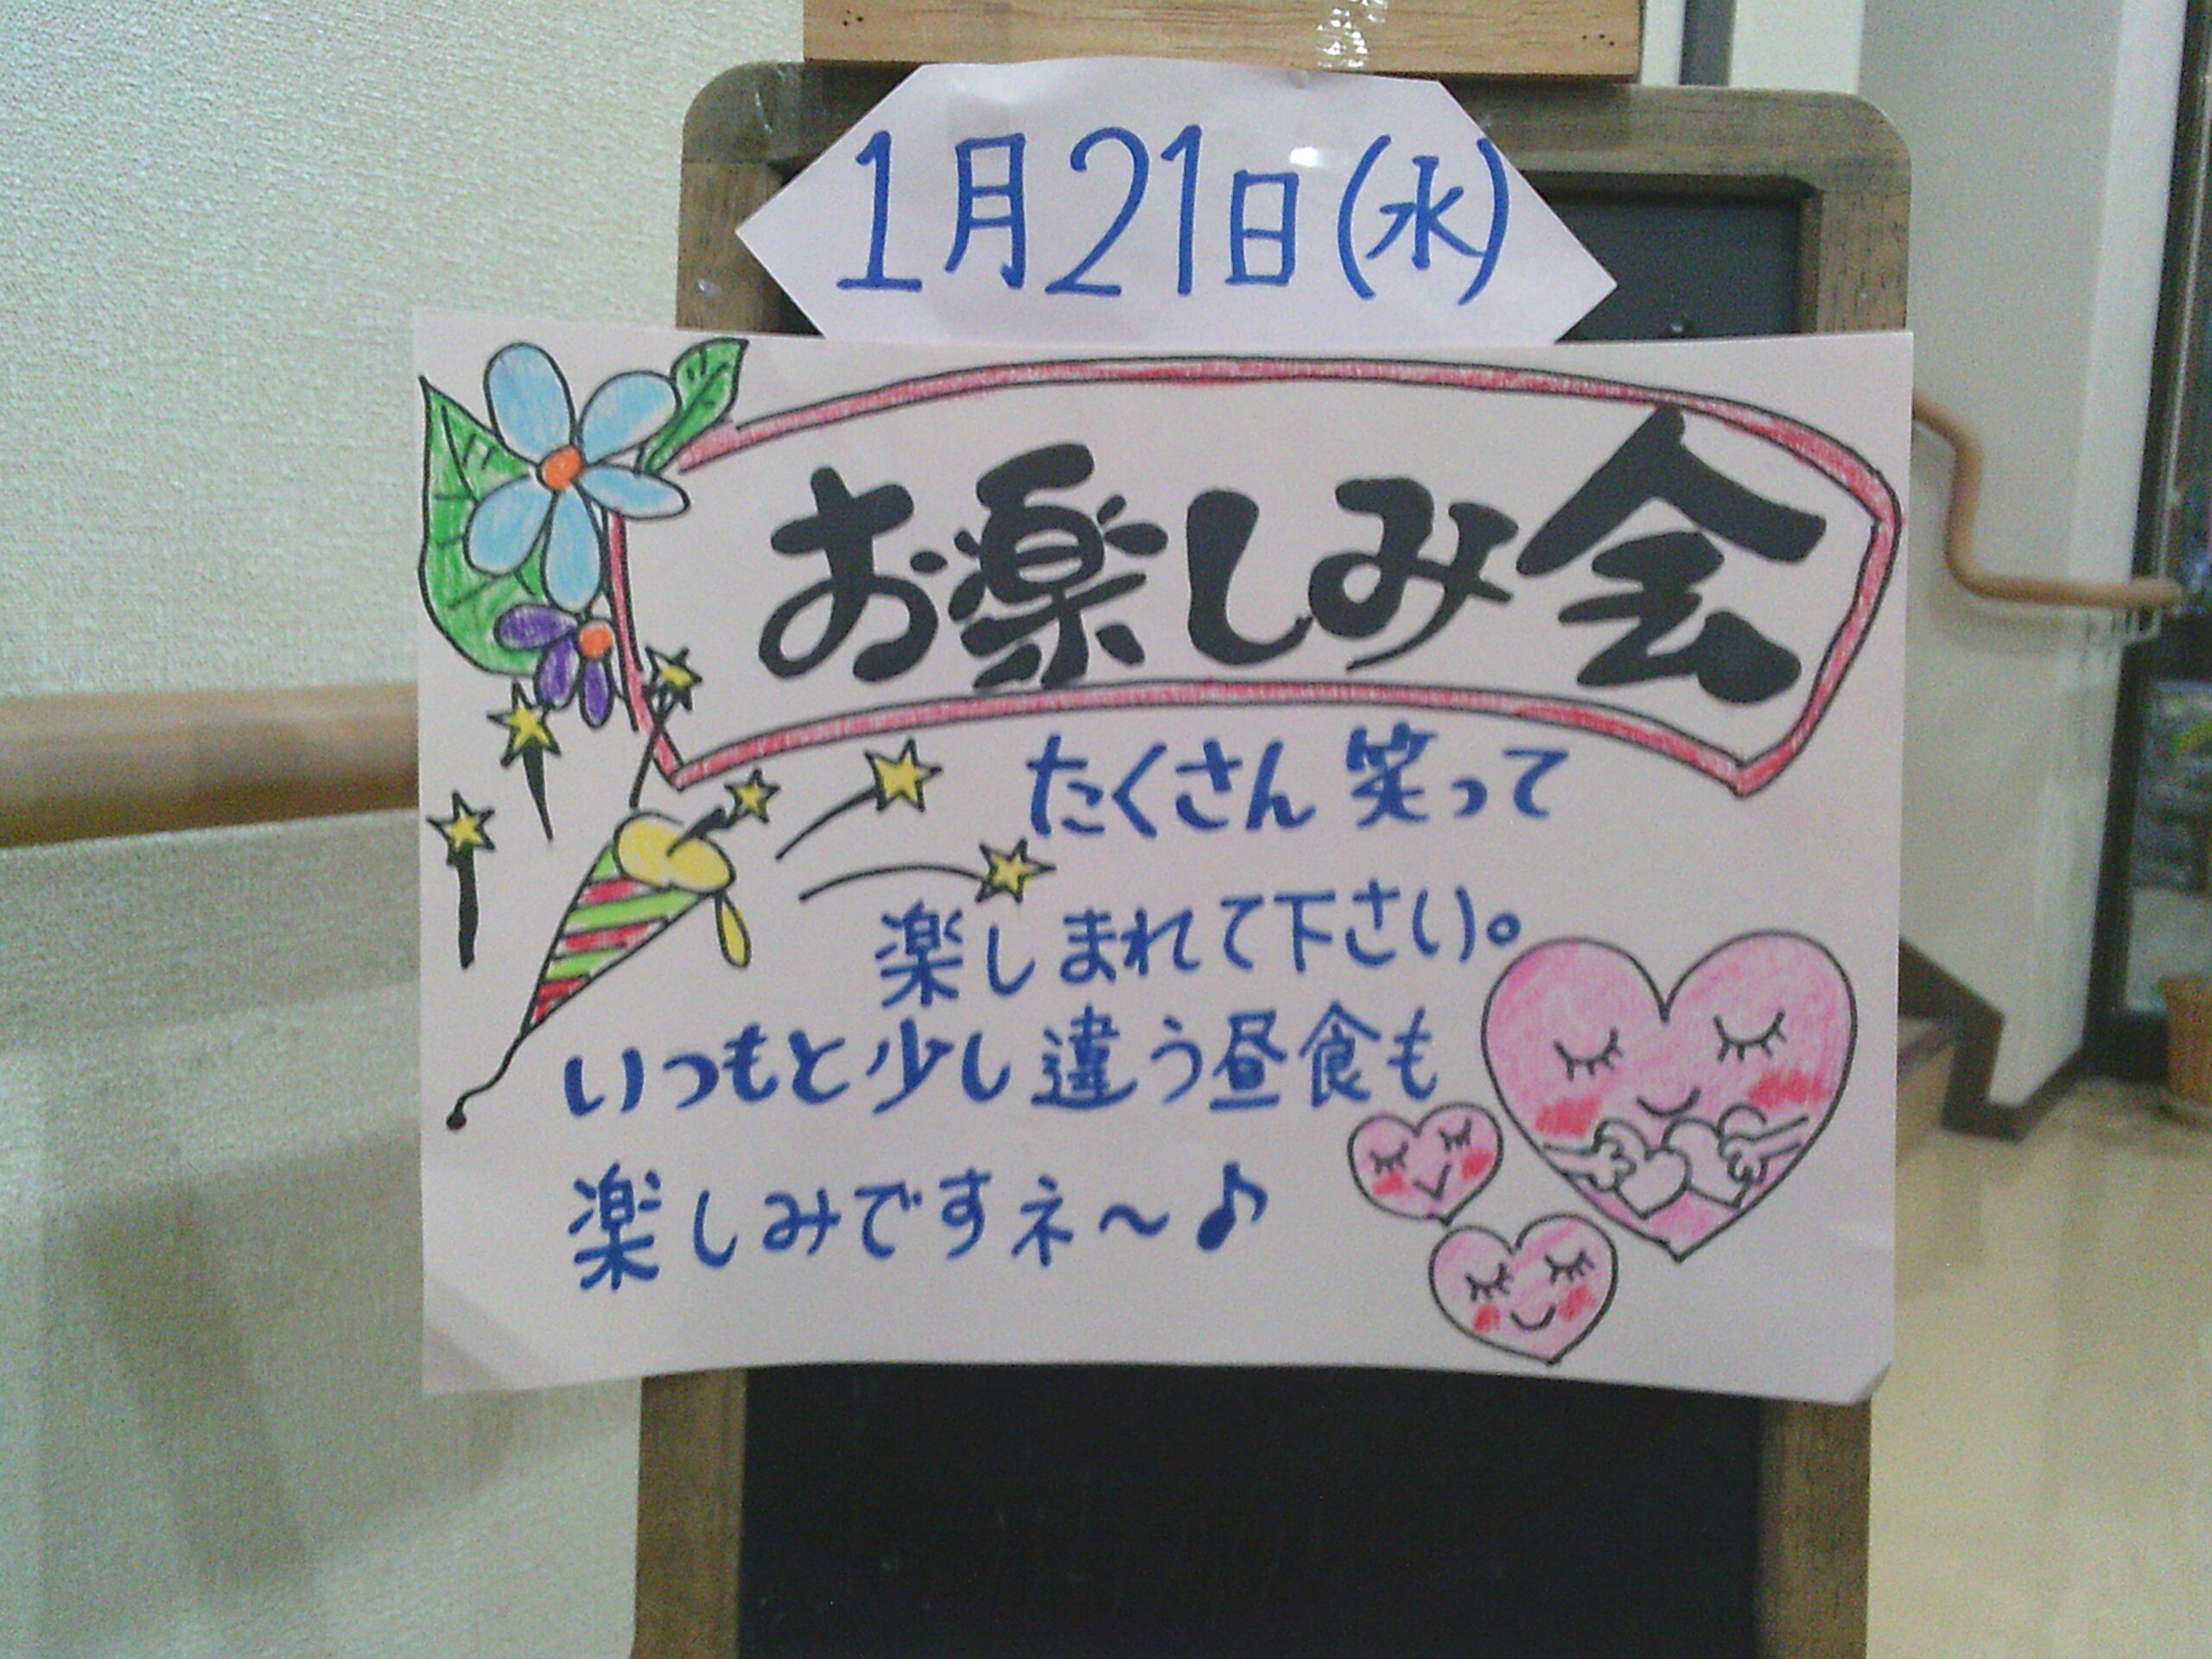 1月21日(水)
お楽しみ会
たくさん笑って
楽しまれて下さい。
いつもと少し違う昼食も
楽しみですネ～♪